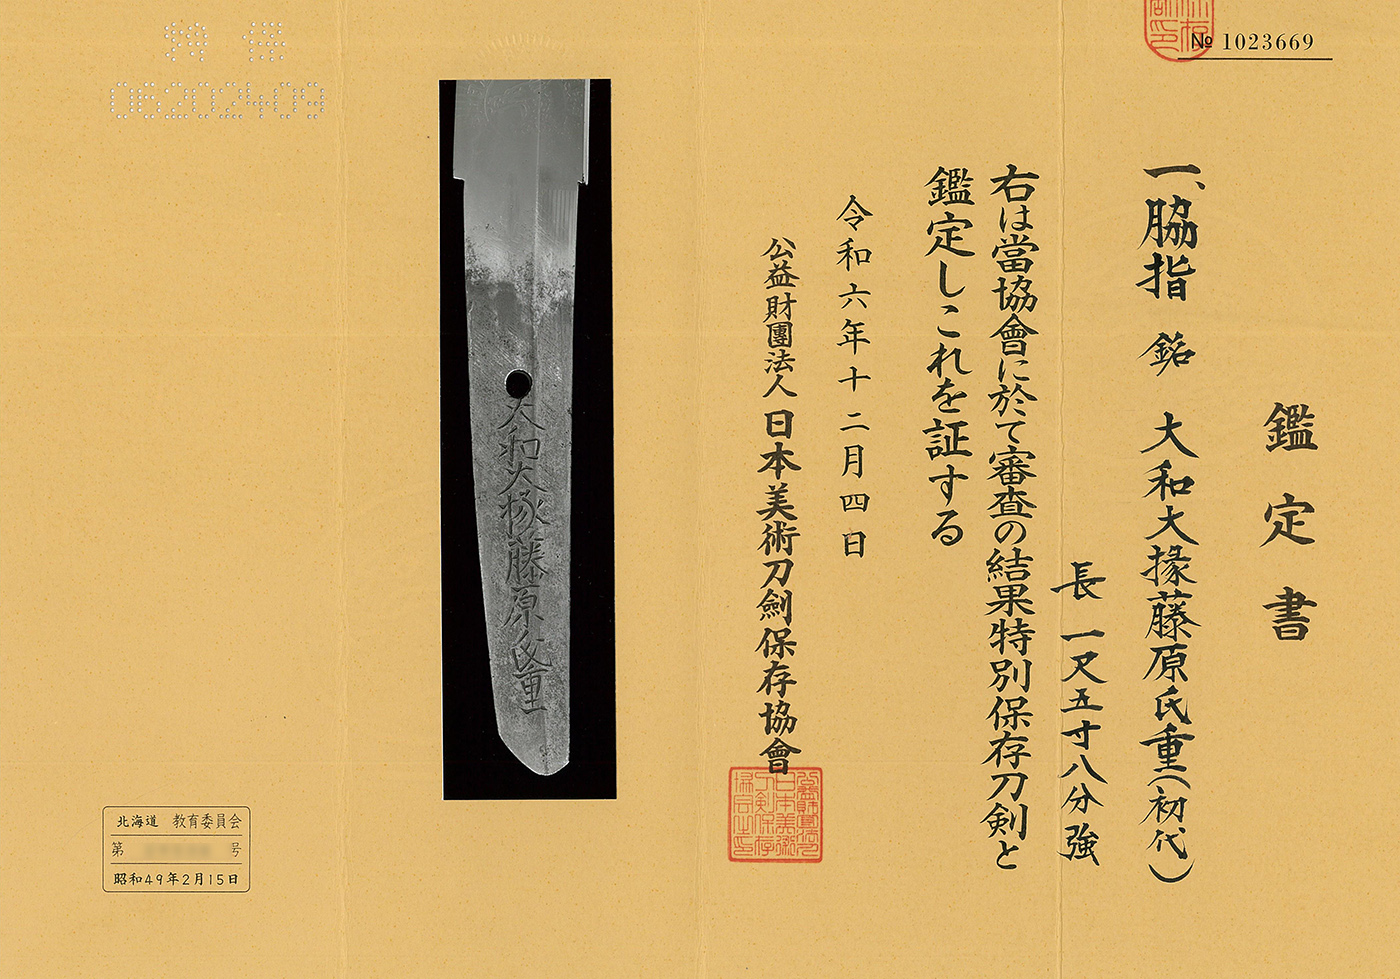 № 1023669
鑑定書
一、脇指 銘 大和大掾藤原氏重(初代)
長 一尺五寸八分強
右は當協會に於て審査の結果特別保存刀剣と
鑑定しこれを証する
令和六年十二月四日
公益財團法人日本美術刀劍保存協會
大和大掾藤原氏重
06202409
北海道 教育委員会
第 号
昭和49年2月15日